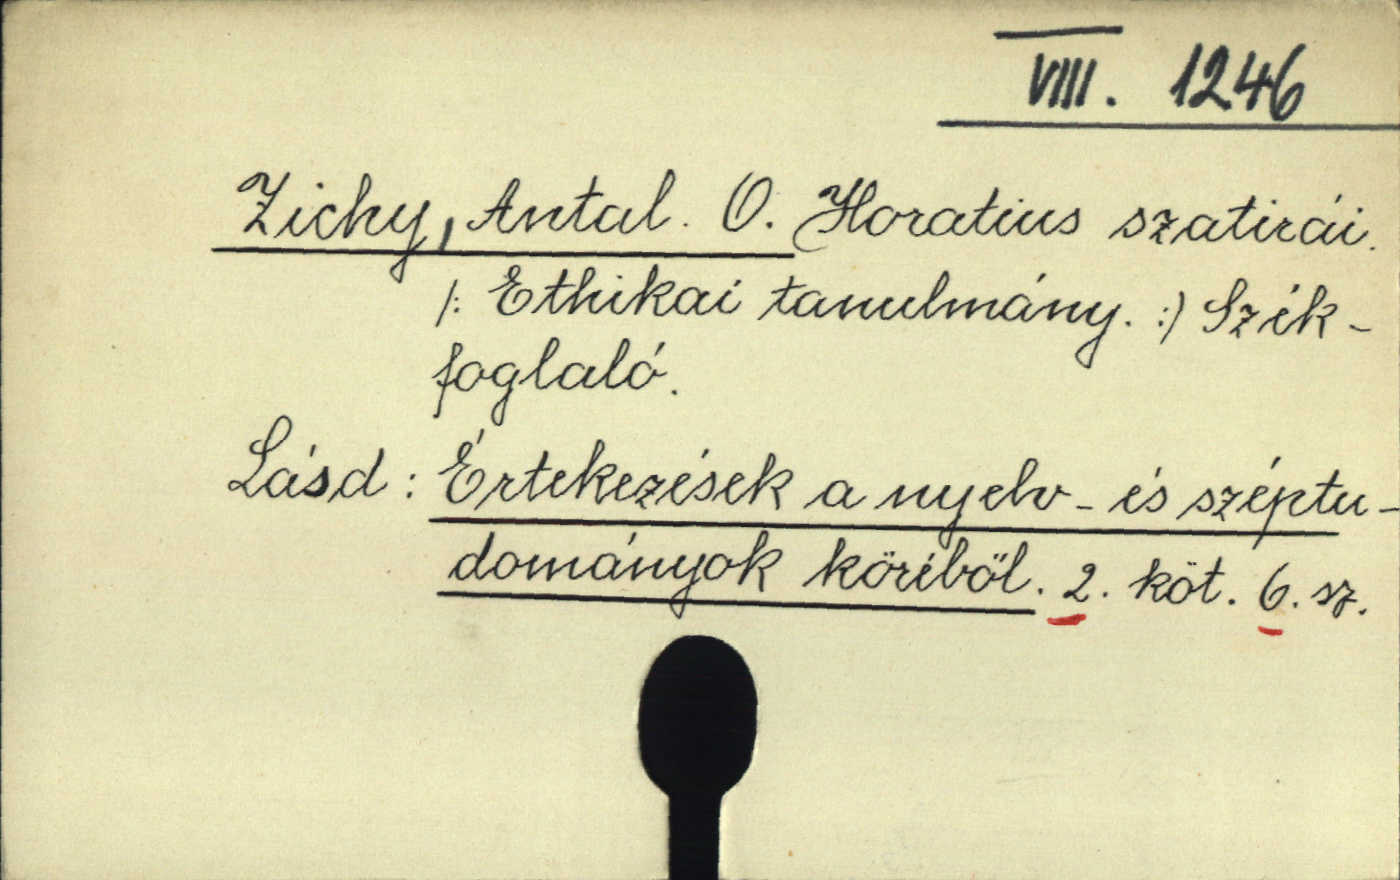 VIII. 1246
Zichy, Antal. O. Horatius szatirái.
/: Ethikai tanulmány. :/ Szék-
foglaló.
Lásd: Értekezések a nyelv- és széptu-
dományok köréből. 2. köt. 6. sz.